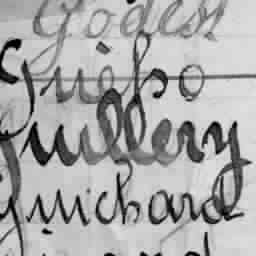 Godest
Guèpo
Guillery
Guichard